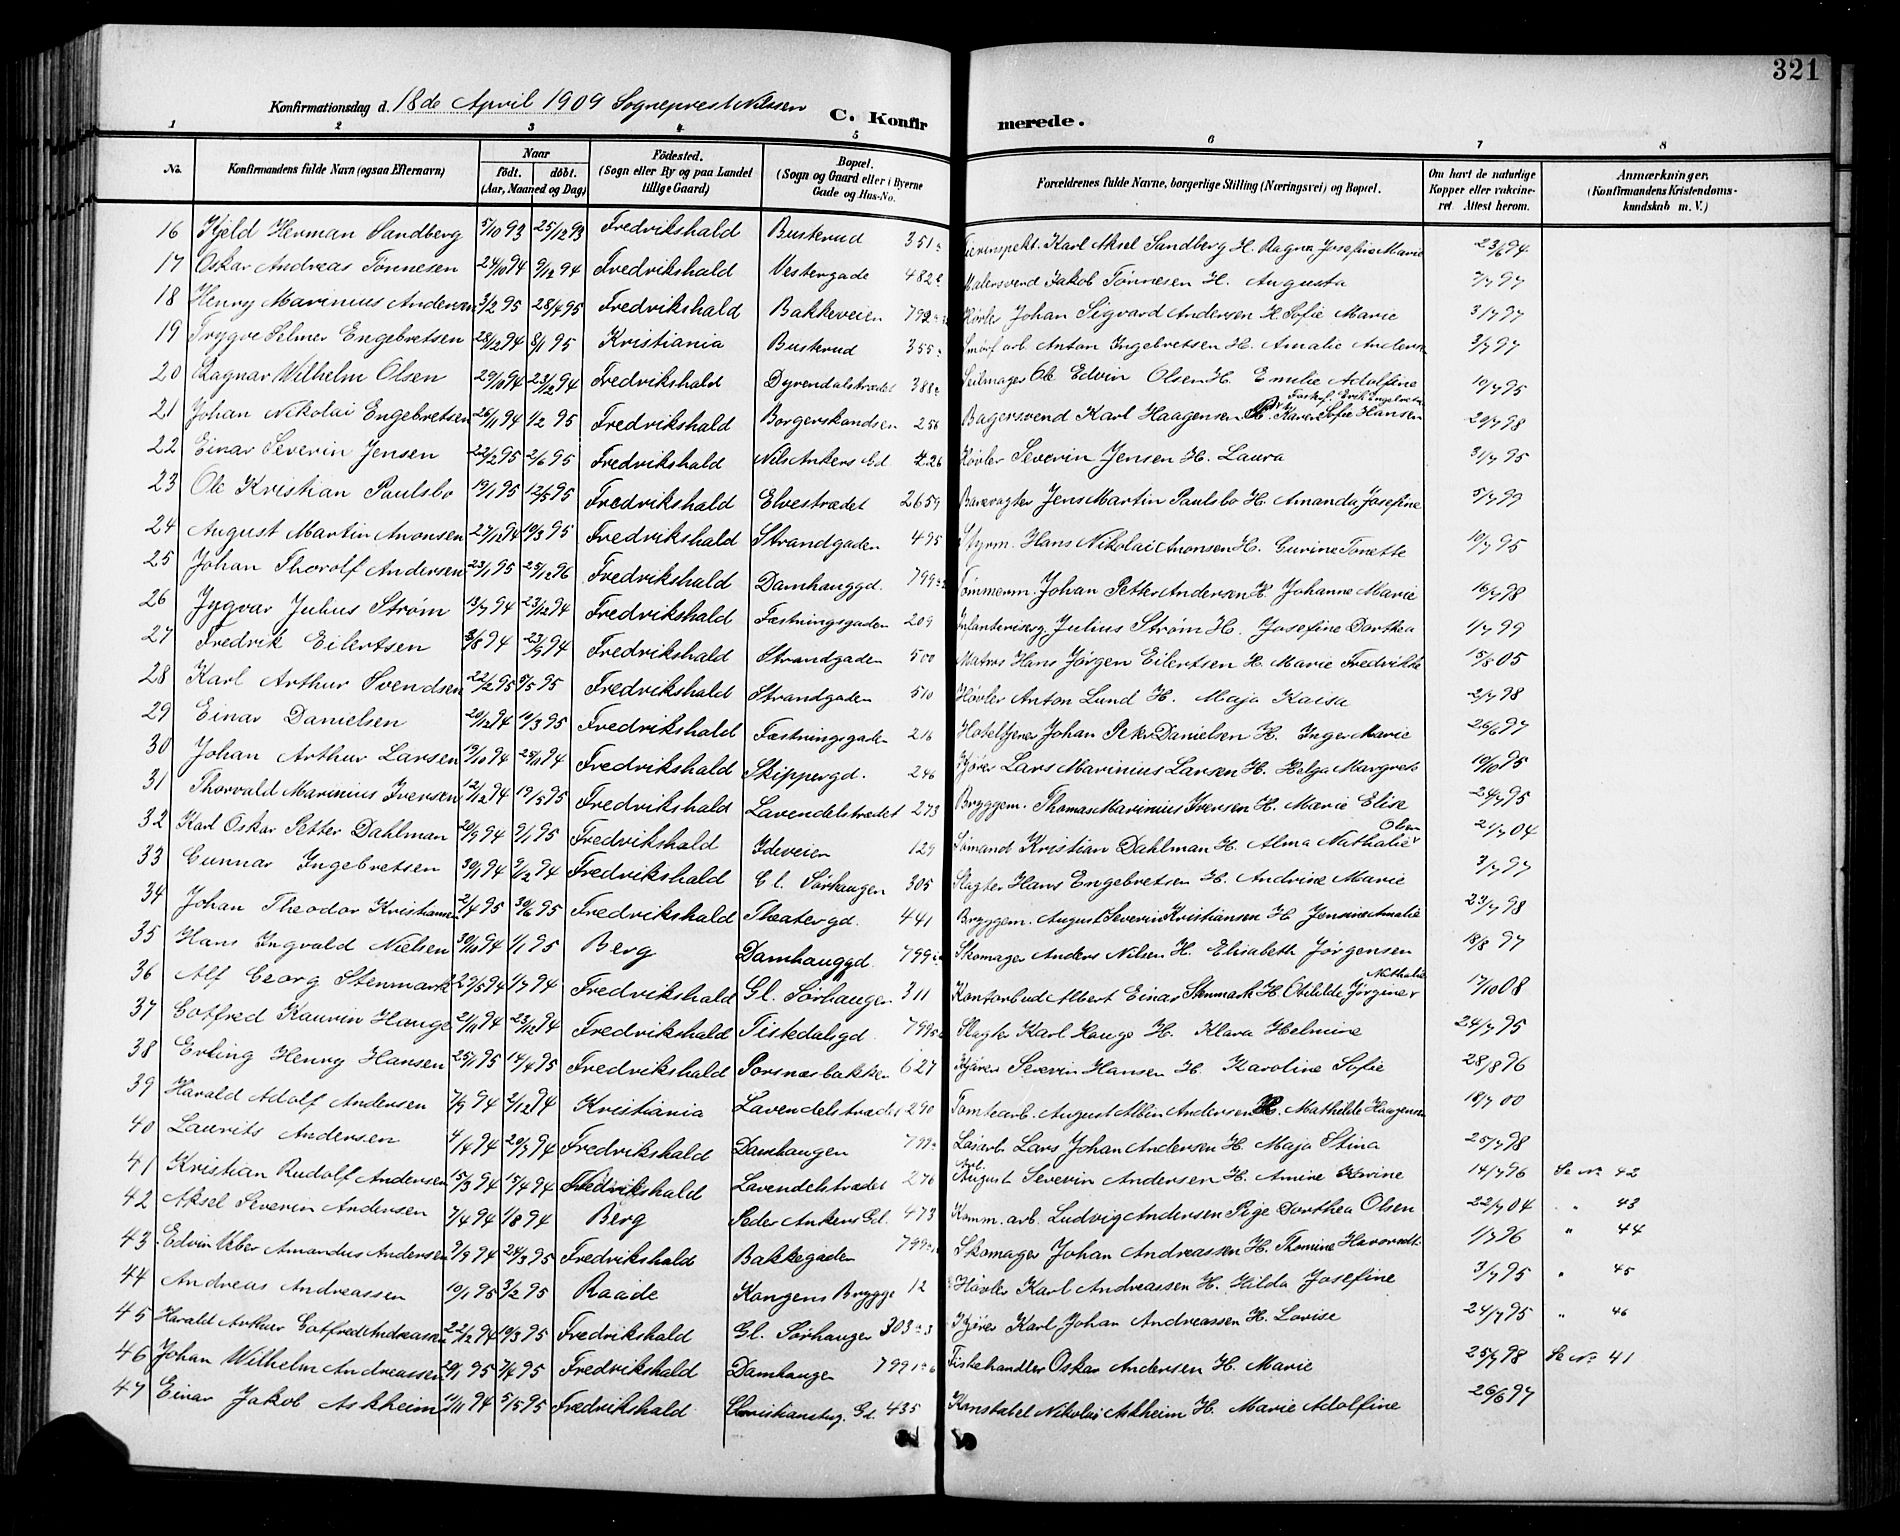 321
Konfirmationsdag d. 18de April 1909 Sogneprest Nilssen
C. Konfirmerede.
1 2 3 4 5 6 7 8
No. Konfirmandens fulde Navn (ogsaa Efternavn) Naar født. døbt. (Aar, Maaned og Dag) Fødested. (Sogn eller By og paa Landet tillige Gaard) Bopæl. (Sogn og Gaard eller i Byerne Gade og Hus-No. Forældrenes fulde Navne, borgerlige Stilling (Næringsvei) og Bopæl. Om havt de naturlige Kopper eller vaccineret. Attest herom. Anmærkninger. (Konfirmandens Kristendomskundskab m. V.)
16 Kjeld Herman Sandberg 5/10 93 25/12 93 Fredrikshald Buskrud 351 Karl Aksel Sandberg H. Ragna Josefine Marie 23/6 94
17 Oskar Andreas Tønnesen 24/10 94 9/12 94 Fredrikshald Vestergade 482 Malersvend Jakob Tønnesen H. Augusta 7/7 97
18 Henry Marinius Andersen 3/2 95 28/4 95 Fredrikshald Bakkeveien 792 Høvler Johan Sigvard Andersen H. Sofie Marie 3/7 97
19 Trygve Selmer Engebretsen 28/12 94 8/1 95 Kristiania Buskrud 355 arb. Anton Ingebretsen H. Amalie Andersen 3/7 97
20 Ragnar Wilhelm Olsen 29/10 94 23/12 94 Fredrikshald Dyrendalstrædet 388 Seilmager Ole Edvin Olsen H. Emilie Adolfine 10/7 95
21 Johan Nikolai Engebretsen 26/11 94 1/2 95 Fredrikshald Borgerskandsen 256 Bagersvend Karl Haagensen H. Karen Sofie Hansen 29/7 98
22 Einar Severin Jensen 22/2 95 2/6 95 Fredrikshald Nils Ankers Gd 226 Høvler Severin Jensen H. Laura 31/7 95
23 Ole Kristian Paulsbo 19/1 95 12/5 95 Fredrikshald Elvestrædet 2659 Banevagter Jens Martin Paulsbo H. Amanda Josefine 5/7 99
24 August Martin Aronsen 27/12 94 10/3 95 Fredrikshald Strandgaden 495 Styrm. Hans Nikolai Aronsen H. Gurine Tonette 10/7 95
25 Johan Thorolf Andersen 23/1 95 25/12 96 Fredrikshald Damhauggd. 799 Tømmerm. Johan Petter Andersen H. Johanne Marie 16/7 98
26 Jygvar Julius Strøm 13/7 94 23/12 94 Fredrikshald Fæstningsgaden 209 Julius Strøm H. Josefine Dorthea 1/7 99
27 Fredrik Eilertsen 3/8 94 23/9 94 Fredrikshald Strandgaden 500 Matros Hans Jørgen Eilertsen H. Marie Fredrikke 15/5 05
28 Karl Arthur Svendsen 22/2 95 5/5 95 Fredrikshald Strandgaden 510 Høvler Anton Lund H. Maja Kaisa 2/7 98
29 Einar Danielsen 20/12 94 10/3 95 Fredrikshald Fæstningsgaden 216 Hoteltjener Johan Peter Danielsen H. Inger Marie 26/6 97
30 Johan Arthur Larsen 19/10 94 25/11 94 Fredrikshald Skippergd. 246 Kjører Lars Marinius Larsen H. Helga Margrete 19/10 95
31 Thorvald Marinius Iversen 12/12 94 19/5 95 Fredrikshald Lavendelstrædet 273 Bryggem. Thomas Marinius Iversen H. Marie Elise 24/7 95
32 Karl Oskar Petter Dahlman 20/9 94 9/1 95 Fredrikshald Ideveien 129 Sømand Kristian Dahlman H. Alma Nathalie Olsen 21/7 04
33 Gunnar Ingebretsen 30/1 94 9/12 94 Fredrikshald Gl. Sørhaugen 305 Slagter Hans Engebretsen H. Andrine Marie 3/7 97
34 Johan Theodor Kristiansen 2/4 95 30/6 95 Fredrikshald Theatergd. 441 Bryggem. August Severin Kristiansen H Jennine Amalie 23/7 98
35 Hans Ingvald Nielsen 30/10 94 1/1 95 Berg Damhauggd. 799 Skomager Anders Nilsen H. Elisabeth Jørgensen 18/8 97
36 Alf Georg Stenmark 29/5 94 1/7 94 Fredrikshald Gl. Sørhaugen 311 Kontorbud Albert Einar Stenmark H. Otilde Jørgine Nathalie 17/10 08
37 Gotfred Laurin Hauge 21/11 94 23/12 94 Fredrikshald Tistedalsgd. 799 Slagter Karl Hauge H. Klara Helmine 24/7 95
38 Erling Henry Hansen 25/1 95 14/4 95 Fredrikshald Porsnæsbakken 627 Kjører Severin Hansen H. Karoline Sofie 28/8 96
39 Harald Adolf Andersen 7/9 94 2/12 94 Kristiania Lavendelstrædet 290 Tomtearb. August Albin Andersen H. Mathilde Haagensen 18/7 00
40 Laurits Andersen 4/4 94 29/7 94 Fredrikshald Damhaugen 799 Løsarb. Lars Johan Andersen H. Maja Stina 25/7 98
41 Kristian Rudolf Andersen 15/3 94 15/4 94 Fredrikshald Lavendelstrædet 276 Arb. August Severin Andersen H. Amine Karine 14/7 96 Se No 42
42 Aksel Severin Andersen 7/4 94 1/8 94 Berg Peder Ankers Gd. 473 Komm. arb. Ludvig Andersen Pige Dorthea Olsen 22/7 04 " 43
43 Edvin Amandus Andersen 9/9 94 24/3 95 Fredrikshald Bakkegaden 799 Skomager Johan Andreassen H. Thomine 1/7 96 " 44
44 Andreas Andreassen 10/1 95 3/2 95 Raade Kongens Brygge 12 Høvler Karl Andreassen H. Hilda Josefine 3/7 95 " 45
45 Harald Arthur Gotfred Andreassen 22/12 94 10/3 95 Fredrikshald Gl. Sørhaugen 303 Kjører Karl Johan Andreassen H. Lovise 24/7 95 " 46
46 Johan Wilhelm Andreassen 20/1 95 7/4 95 Fredrikshald Damhaugen 799 Fiskehandler Oskar Andersen H. Marie 25/7 98 Se No 41
47 Einar Jakob Askheim 11/11 94 5/5 95 Fredrikshald Christiansteg. Gd. 435 Konstabel Nikolai Askheim H. Marie Adolfine 26/6 97